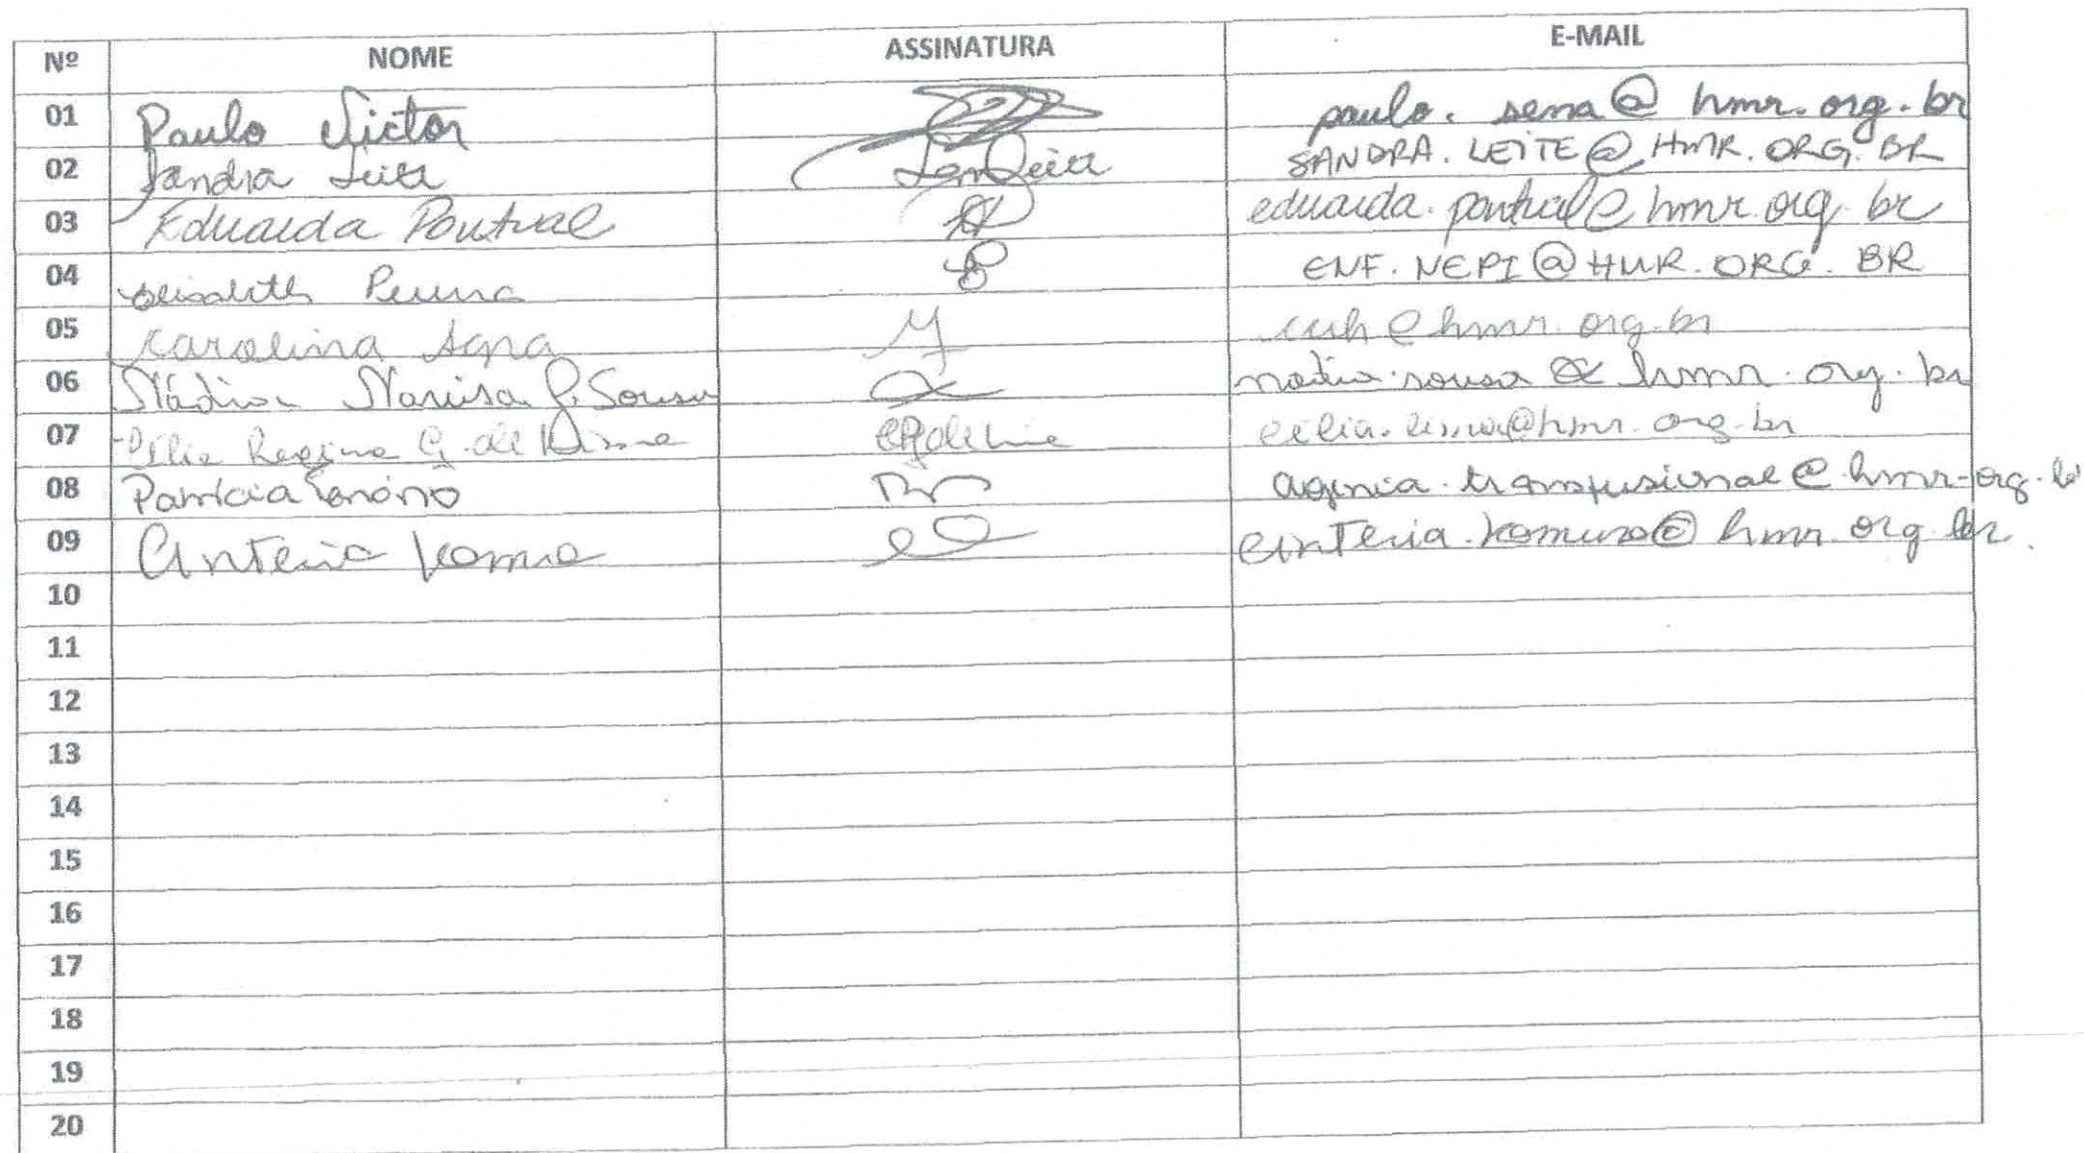 Nº NOME ASSINATURA E-MAIL
01 Paulo Victor paulo.sena@hmr.org.br
02 Sandra Leite SANDRA.LEITE@HMR.ORG.BR
03 Eduarda Pontual eduarda.pontual@hmr.org.br
04 ENF.NEPI@HMR.ORG.BR
05 Carolina Agra @hmr.org.br
06 Nádia Sousa nadia.sousa@hmr.org.br
07 Célia Regina G. de @hmr.org.br
08 Patrícia Tenório agencia.transfusional@hmr.org.br
09 @hmr.org.br
10
11
12
13
14
15
16
17
18
19
20